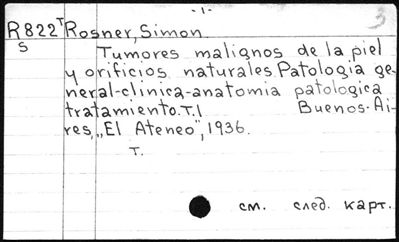 -1-
3
R822T Rosner, Simon
S
Tumores malignos de la piel
y orificios naturales. Patologia ge-
neral-clinica-anatomia patologica
tratamiento. T.1 Buenos-Ai-
res, "El Ateneo", 1936.
T.
см. след. карт.